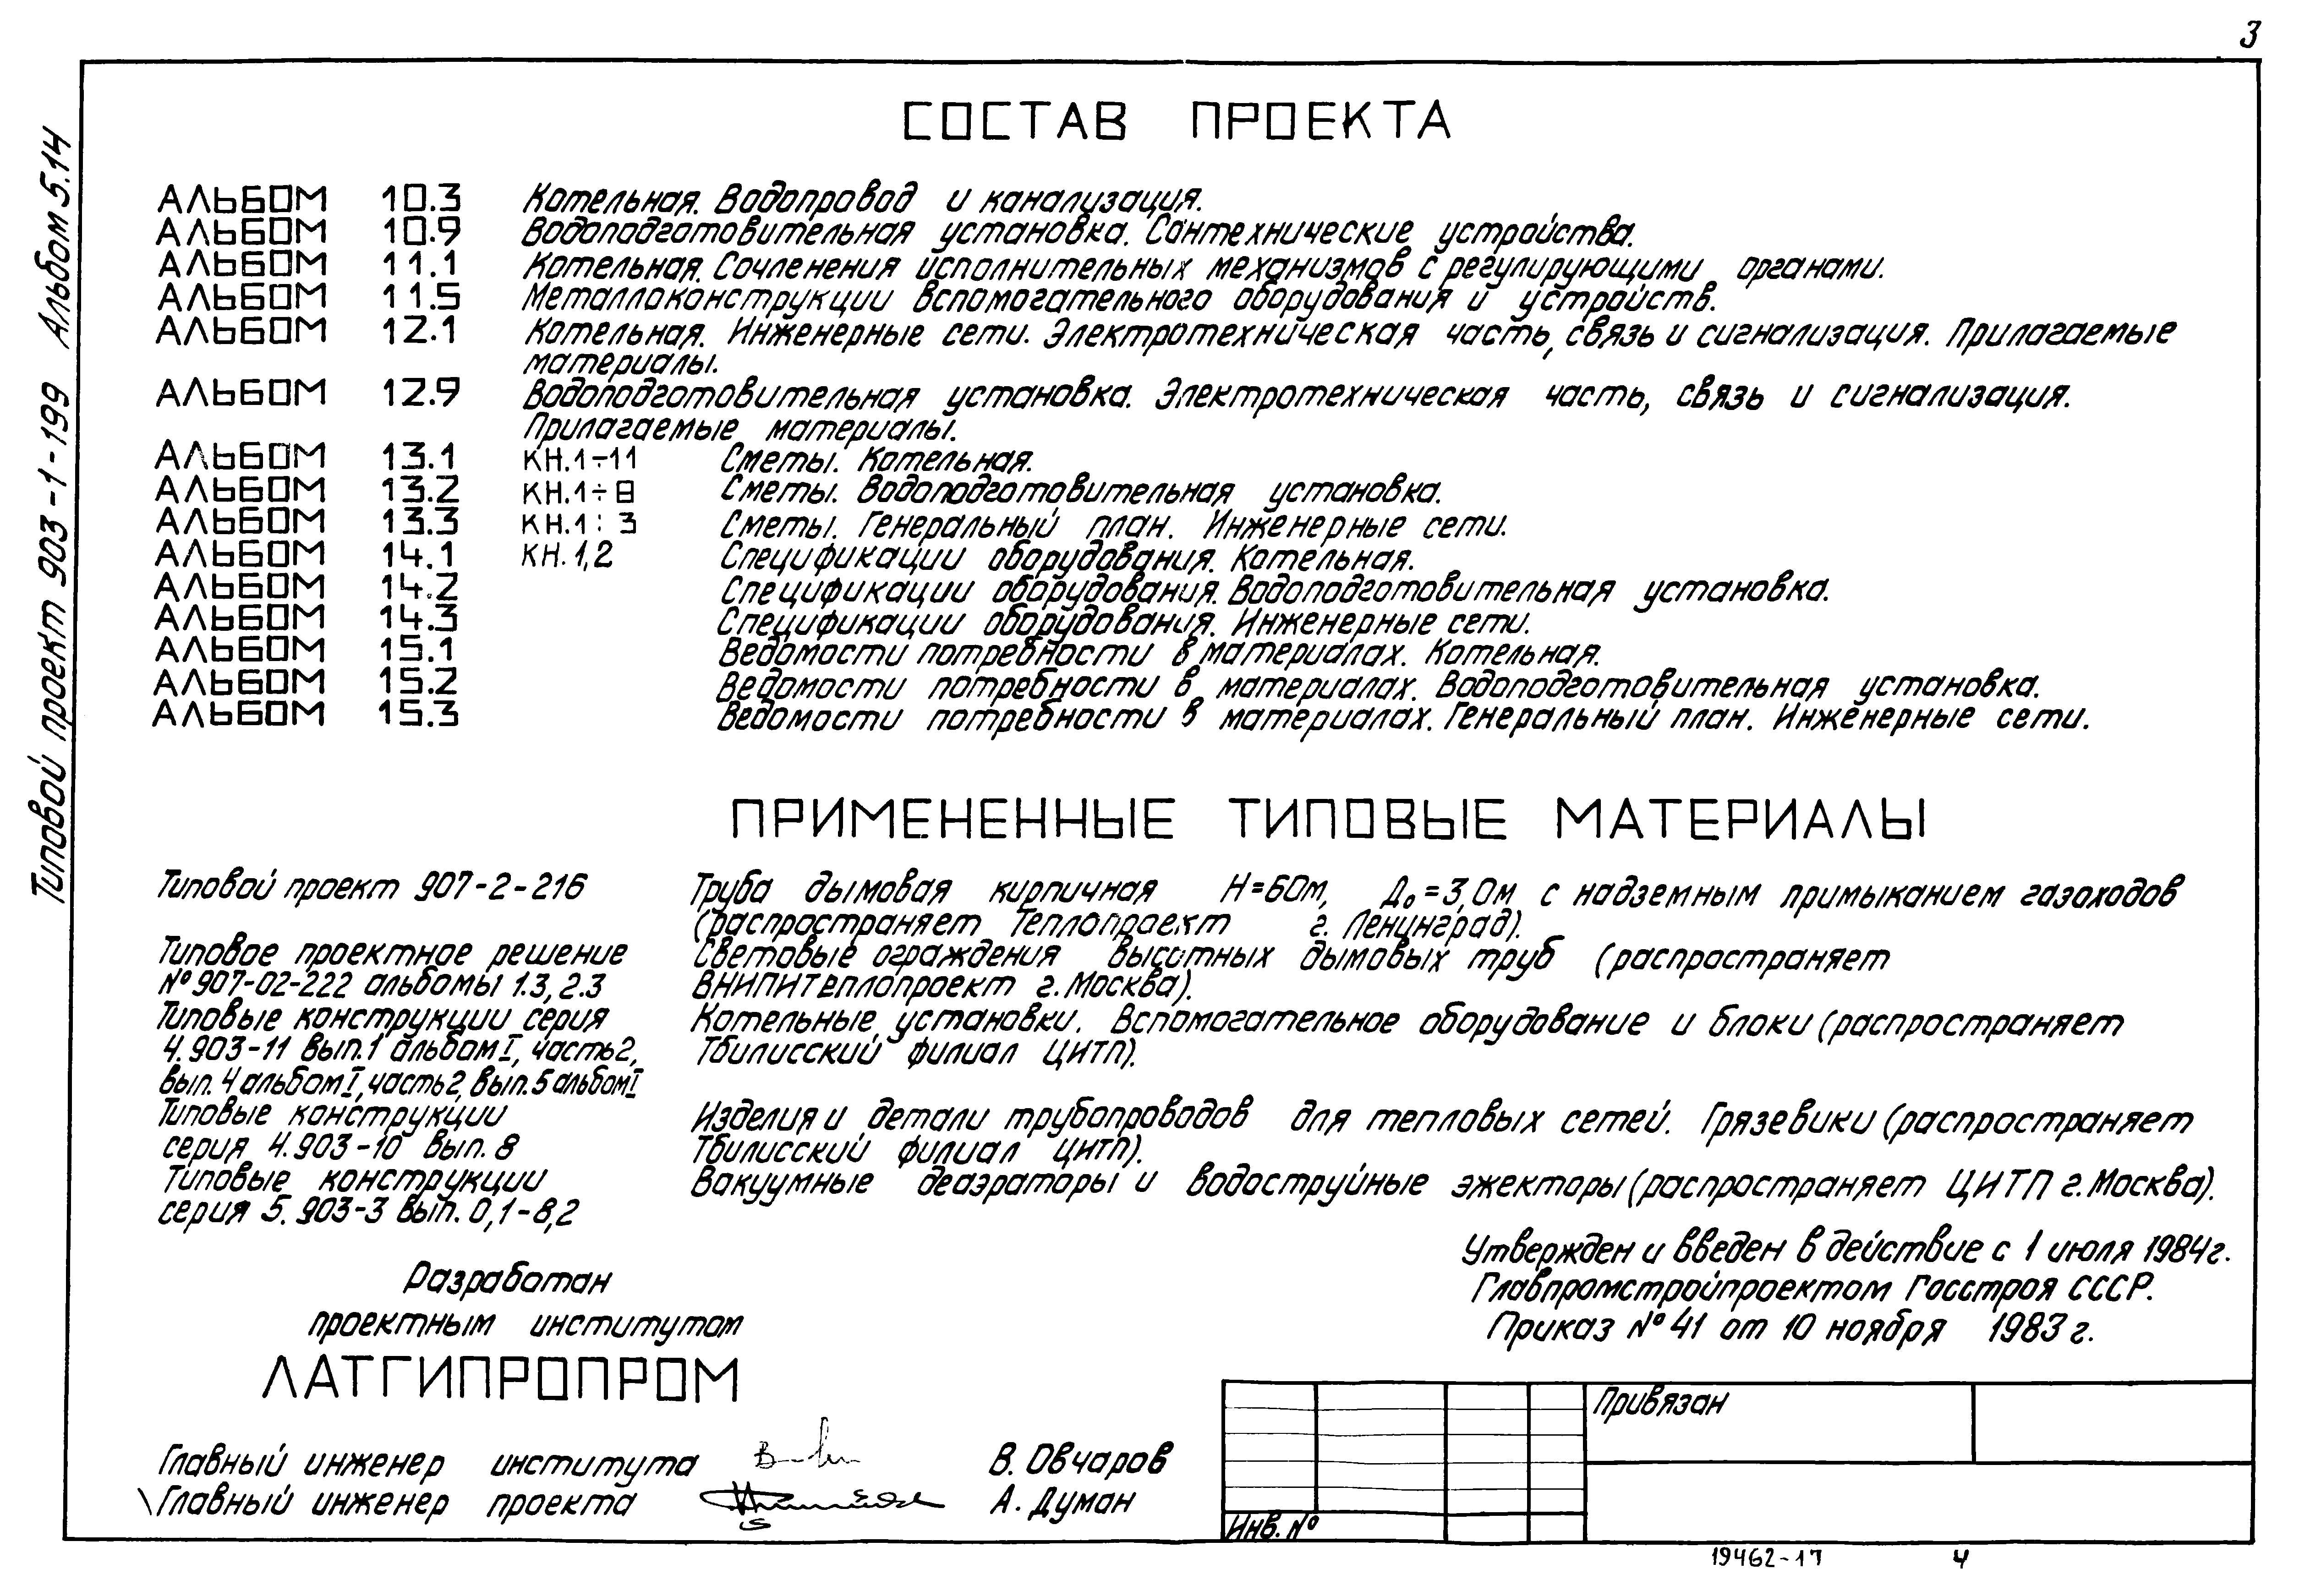 3
Типовой проект 903-1-199 Альбом 5.14
СОСТАВ ПРОЕКТА
АЛЬБОМ 10.3 Котельная. Водопровод и канализация.
АЛЬБОМ 10.9 Водоподготовительная установка. Сантехнические устройства.
АЛЬБОМ 11.1 Котельная. Сочленения исполнительных механизмов с регулирующими органами.
АЛЬБОМ 11.5 Металлоконструкции вспомогательного оборудования и устройств.
АЛЬБОМ 12.1 Котельная. Инженерные сети. Электротехническая часть, связь и сигнализация. Прилагаемые
материалы.
АЛЬБОМ 12.9 Водоподготовительная установка. Электротехническая часть, связь и сигнализация.
Прилагаемые материалы.
АЛЬБОМ 13.1 КН.1÷11 Сметы. Котельная.
АЛЬБОМ 13.2 КН.1÷8 Сметы. Водоподготовительная установка.
АЛЬБОМ 13.3 КН.1:3 Сметы. Генеральный план. Инженерные сети.
АЛЬБОМ 14.1 КН.1,2 Спецификации оборудования. Котельная.
АЛЬБОМ 14.2 Спецификации оборудования. Водоподготовительная установка.
АЛЬБОМ 14.3 Спецификации оборудования. Инженерные сети.
АЛЬБОМ 15.1 Ведомости потребности в материалах. Котельная.
АЛЬБОМ 15.2 Ведомости потребности в материалах. Водоподготовительная установка.
АЛЬБОМ 15.3 Ведомости потребности в материалах. Генеральный план. Инженерные сети.
ПРИМЕНЕННЫЕ ТИПОВЫЕ МАТЕРИАЛЫ
Типовой проект 907-2-216 Труба дымовая кирпичная Н=60м, До=3,0м с надземным примыканием газоходов
(распространяет Теплопроект г. Ленинград).
Типовое проектное решение Световые ограждения высотных дымовых труб (распространяет
№907-02-222 альбомы 1.3, 2.3 ВНИПИТеплопроект г. Москва).
Типовые конструкции серия Котельные установки. Вспомогательное оборудование и блоки (распространяет
4.903-11 вып.1 альбом I, часть2, Тбилисский филиал ЦИТП).
вып. 4 альбом I, часть2, вып.5 альбом I
Типовые конструкции Изделия и детали трубопроводов для тепловых сетей. Грязевики (распространяет
серия 4.903-10 вып. 8 Тбилисский филиал ЦИТП).
Типовые конструкции Вакуумные деаэраторы и водоструйные эжекторы (распространяет ЦИТП г. Москва).
серия 5.903-3 вып. 0,1-8,2
Утвержден и введен в действие с 1 июля 1984г.
Главпромстройпроектом Госстроя СССР.
Приказ №41 от 10 ноября 1983 г.
Разработан
проектным институтом
ЛАТГИПРОПРОМ
Главный инженер института В. Овчаров
Главный инженер проекта А. Думан
Привязан
Инв. №
19462-17 4